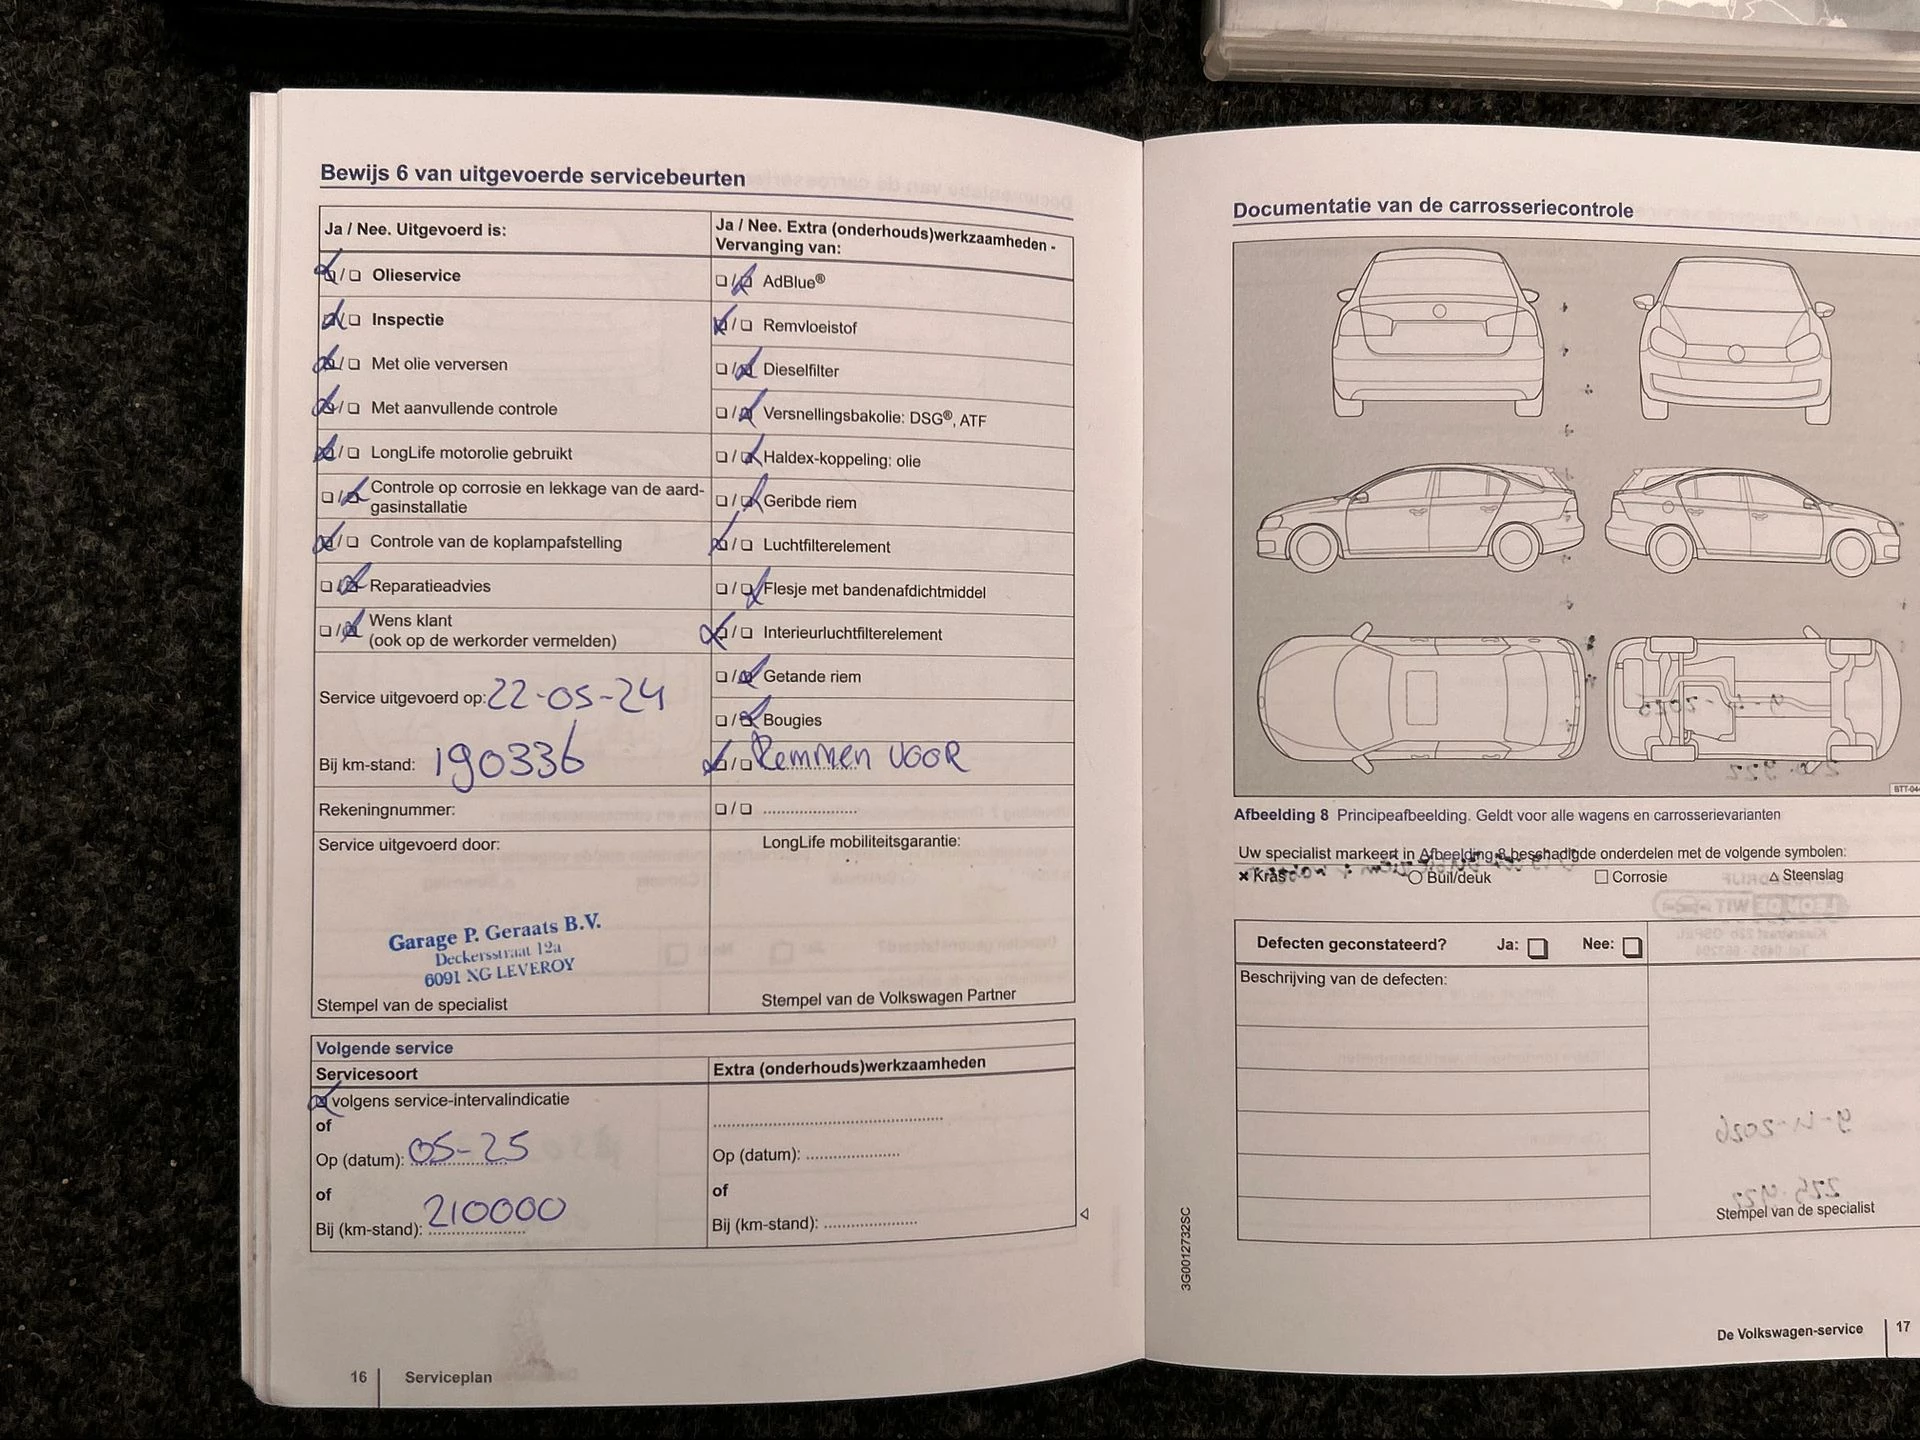 Bewijs 6 van uitgevoerde servicebeurten
Ja / Nee. Uitgevoerd is:
Olieservice
Inspectie
Met olie verversen
Met aanvullende controle
LongLife motorolie gebruikt
Controle op corrosie en lekkage van de aard-
gasinstallatie
Controle van de koplampafstelling
Reparatieadvies
Wens klant
(ook op de werkorder vermelden)
Service uitgevoerd op: 22-05-24
Bij km-stand: 190336
Rekeningnummer:
Service uitgevoerd door:
Garage P. Geraats B.V.
Deckersstraat 12a
6091 NG LEVEROY
Stempel van de specialist
Ja / Nee. Extra (onderhouds)werkzaamheden -
Vervanging van:
AdBlue®
Remvloeistof
Dieselfilter
Versnellingsbakolie: DSG®, ATF
Haldex-koppeling: olie
Geribde riem
Luchtfilterelement
Flesje met bandenafdichtmiddel
Interieurluchtfilterelement
Getande riem
Bougies
Remmen VOOR
LongLife mobiliteitsgarantie:
Stempel van de Volkswagen Partner
Volgende service
Servicesoort
volgens service-intervalindicatie
of
Op (datum): 05-25
of
Bij (km-stand): 210000
Extra (onderhouds)werkzaamheden
Op (datum):
of
Bij (km-stand):
16 Serviceplan
Documentatie van de carrosseriecontrole
BTT-04
Afbeelding 8 Principeafbeelding. Geldt voor alle wagens en carrosserievarianten
Uw specialist markeert in Afbeelding 8 beschadigde onderdelen met de volgende symbolen:
Kras Buil/deuk Corrosie Steenslag
Defecten geconstateerd? Ja: Nee:
Beschrijving van de defecten:
Stempel van de specialist
3G0012732SC
De Volkswagen-service 17